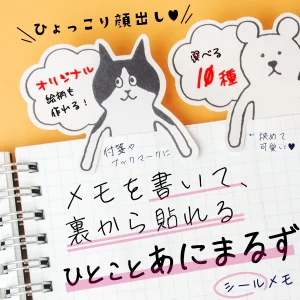 ひょっこり顔出し♥
オリジナル
絵柄も
作れる！
選べる
10種
付箋や
ブックマークに
決めて
可愛い♥
メモを書いて、
裏から貼れる
ひとことあにまるず
シールメモ